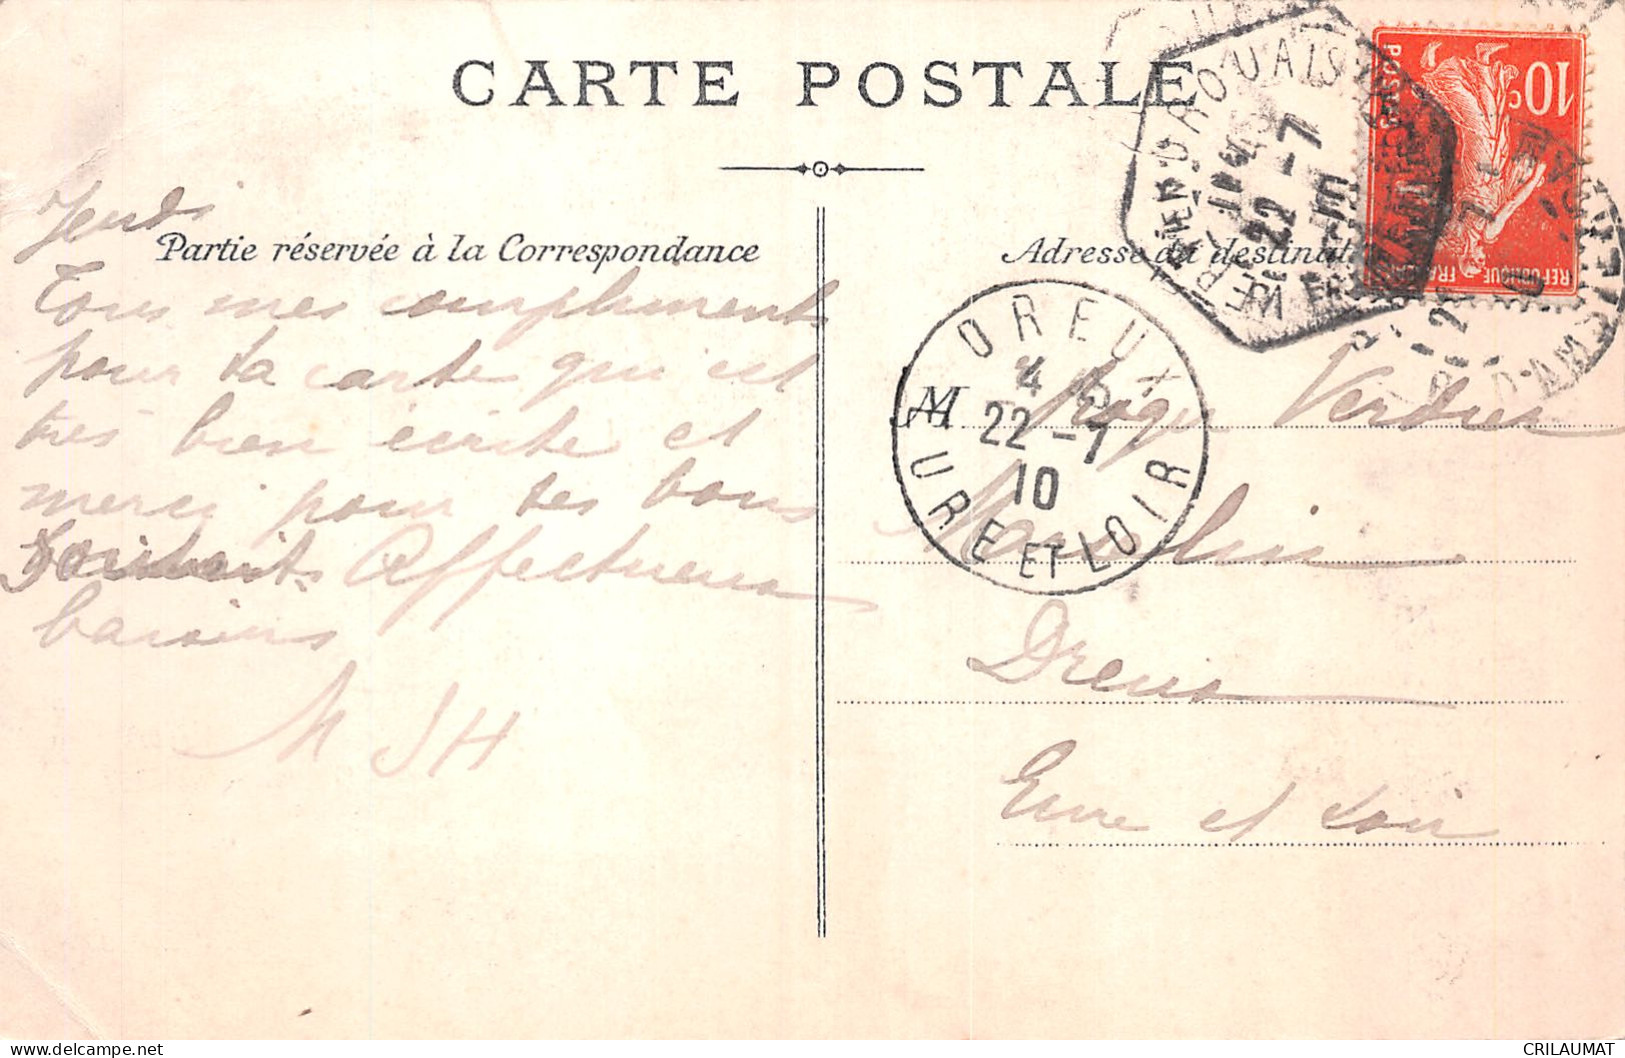 CARTE POSTALE
Partie réservée à la Correspondance
Adresse du destinat
Jeudi
Tous mes compliments
pour ta carte qui est
très bien écrite et
merci pour tes bons
souhaits. Affectueux
baisers
M J H
M Roger Verdier
Dreux
Eure et Loir
DREUX
4
22 - 7
10
EURE ET LOIR
22 - 7
10c
POSTES
REPUBLIQUE FRANÇAISE
CRILAUMAT